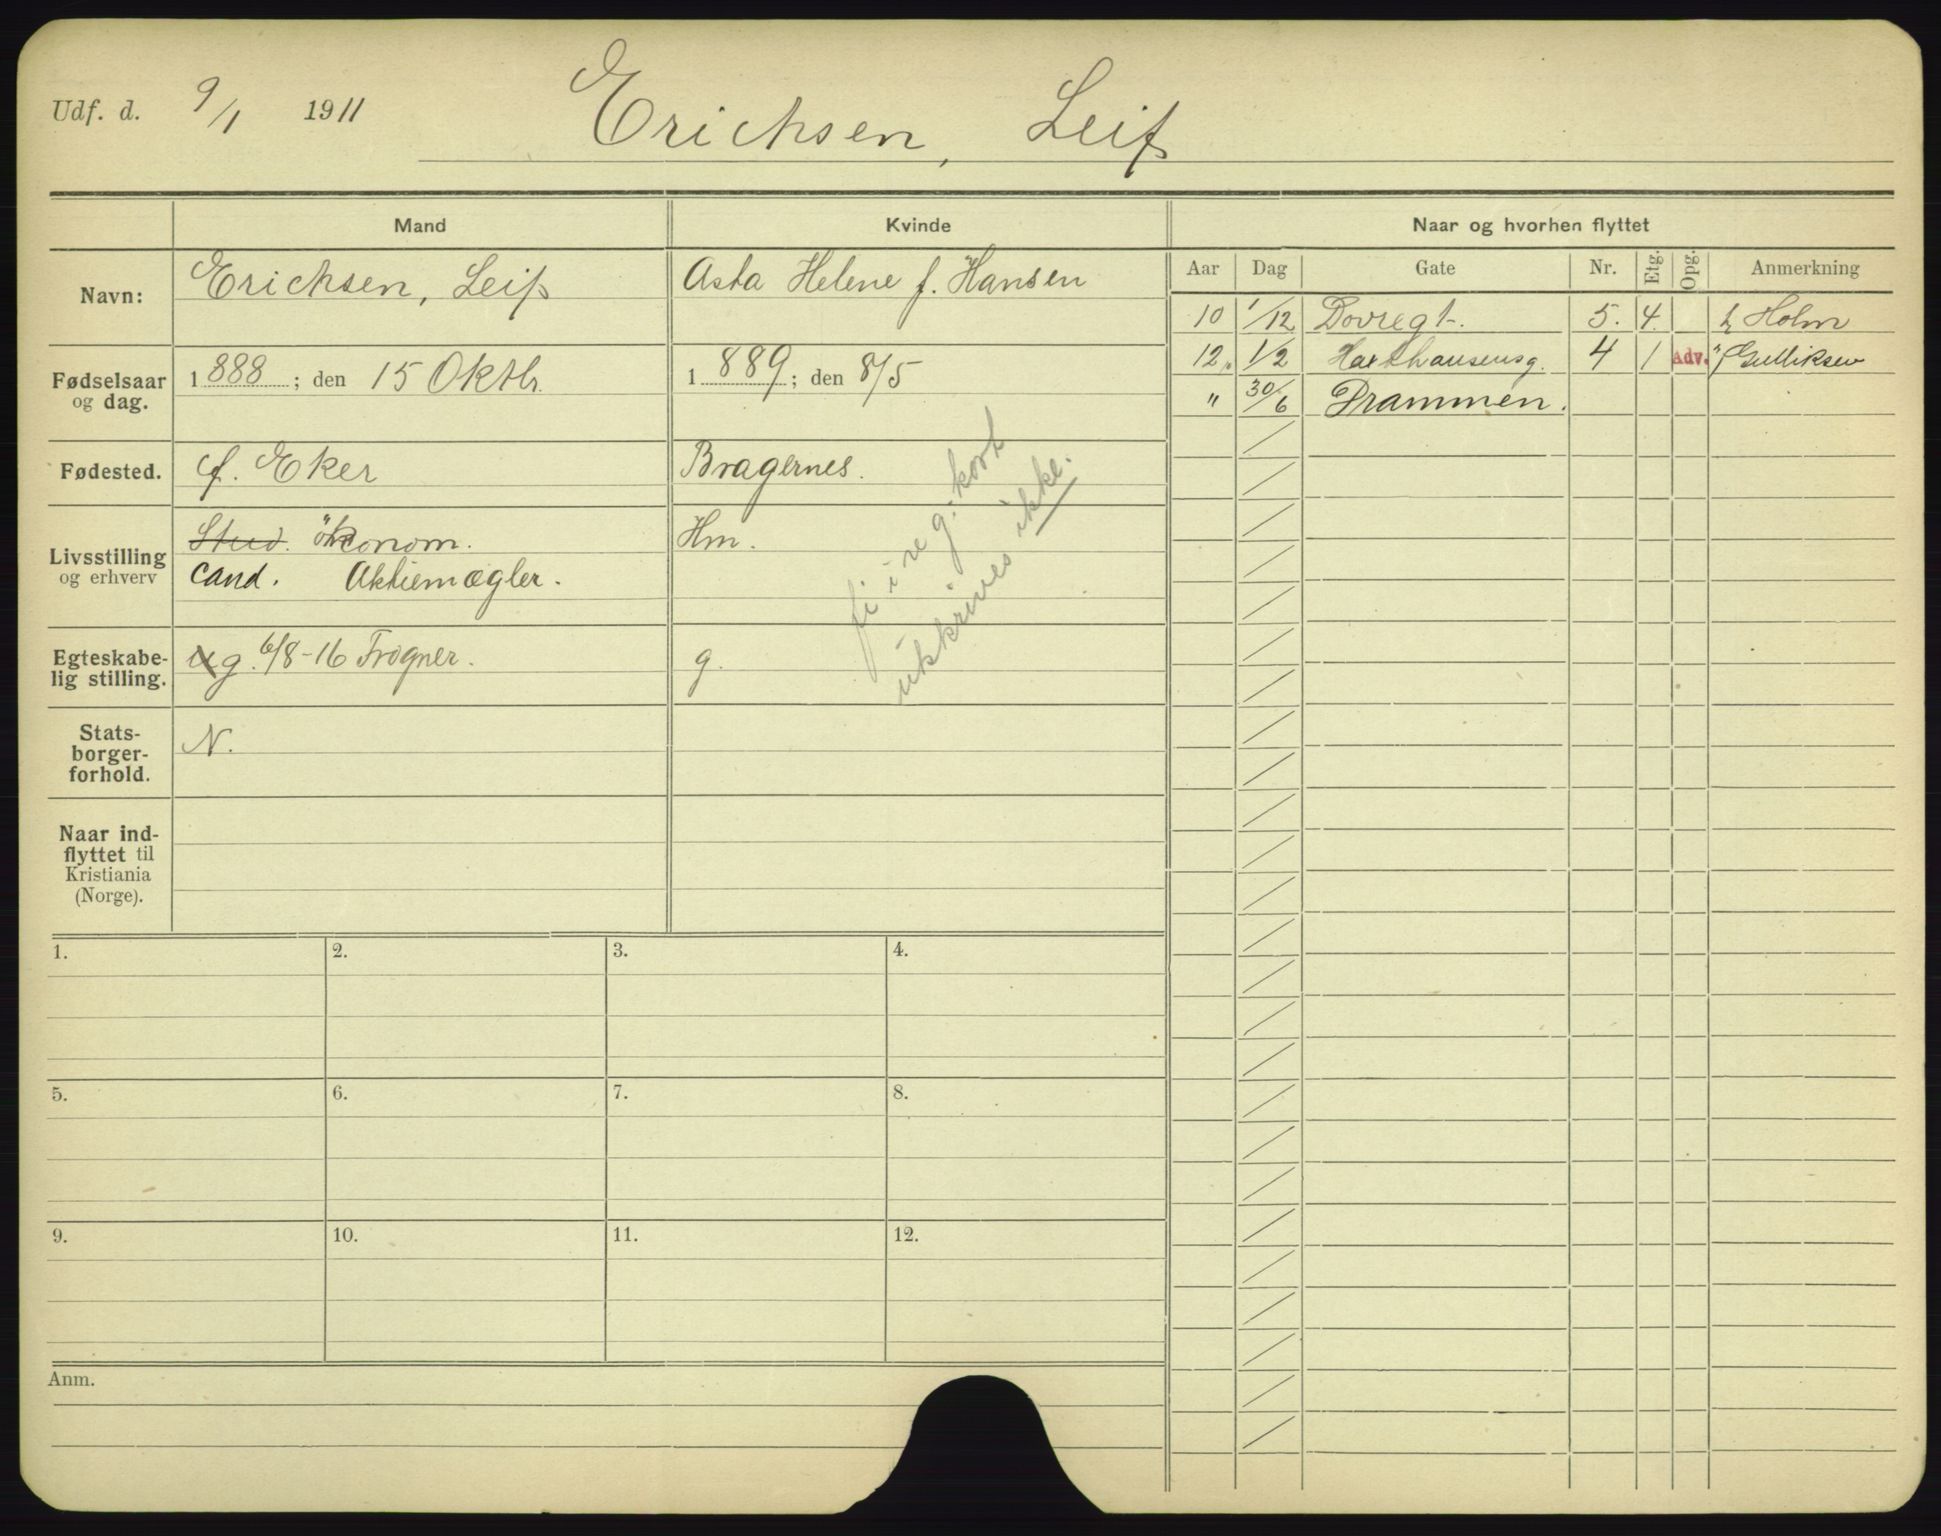 Udf. d. 9/1 1911 Erichsen, Leif
Mand Kvinde Naar og hvorhen flyttet
Navn: Erichsen, Leif Asta Helene f. Hansen
Aar Dag Gate Nr. Etg. Opg. Anmerkning
10 1/12 Dovregt. 5. 4. h Holm
12. 1/2 Haxthausensg. 4 1 Adv. " Gulliksen
" 30/6 Drammen.
Fødselsaar
og dag.
1888; den 15 Oktbr. 1889; den 8/5
Fødested. f. Eker Bragernes.
Livsstilling
og erhverv
Stud. økonom. Hm.
cand. Aktiemægler.
i reg. kort
utskrives ikke.
Egteskabe-
lig stilling.
ug. 6/8-16 Frogner. g.
Stats-
borger-
forhold.
N.
Naar ind-
flyttet til
Kristiania
(Norge).
1. 2. 3. 4.
5. 6. 7. 8.
9. 10. 11. 12.
Anm.